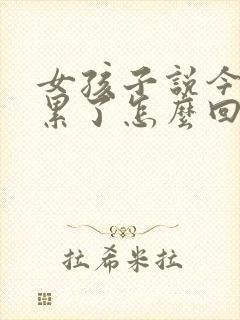 女孩子説今
累了怎麼回
拉希米拉